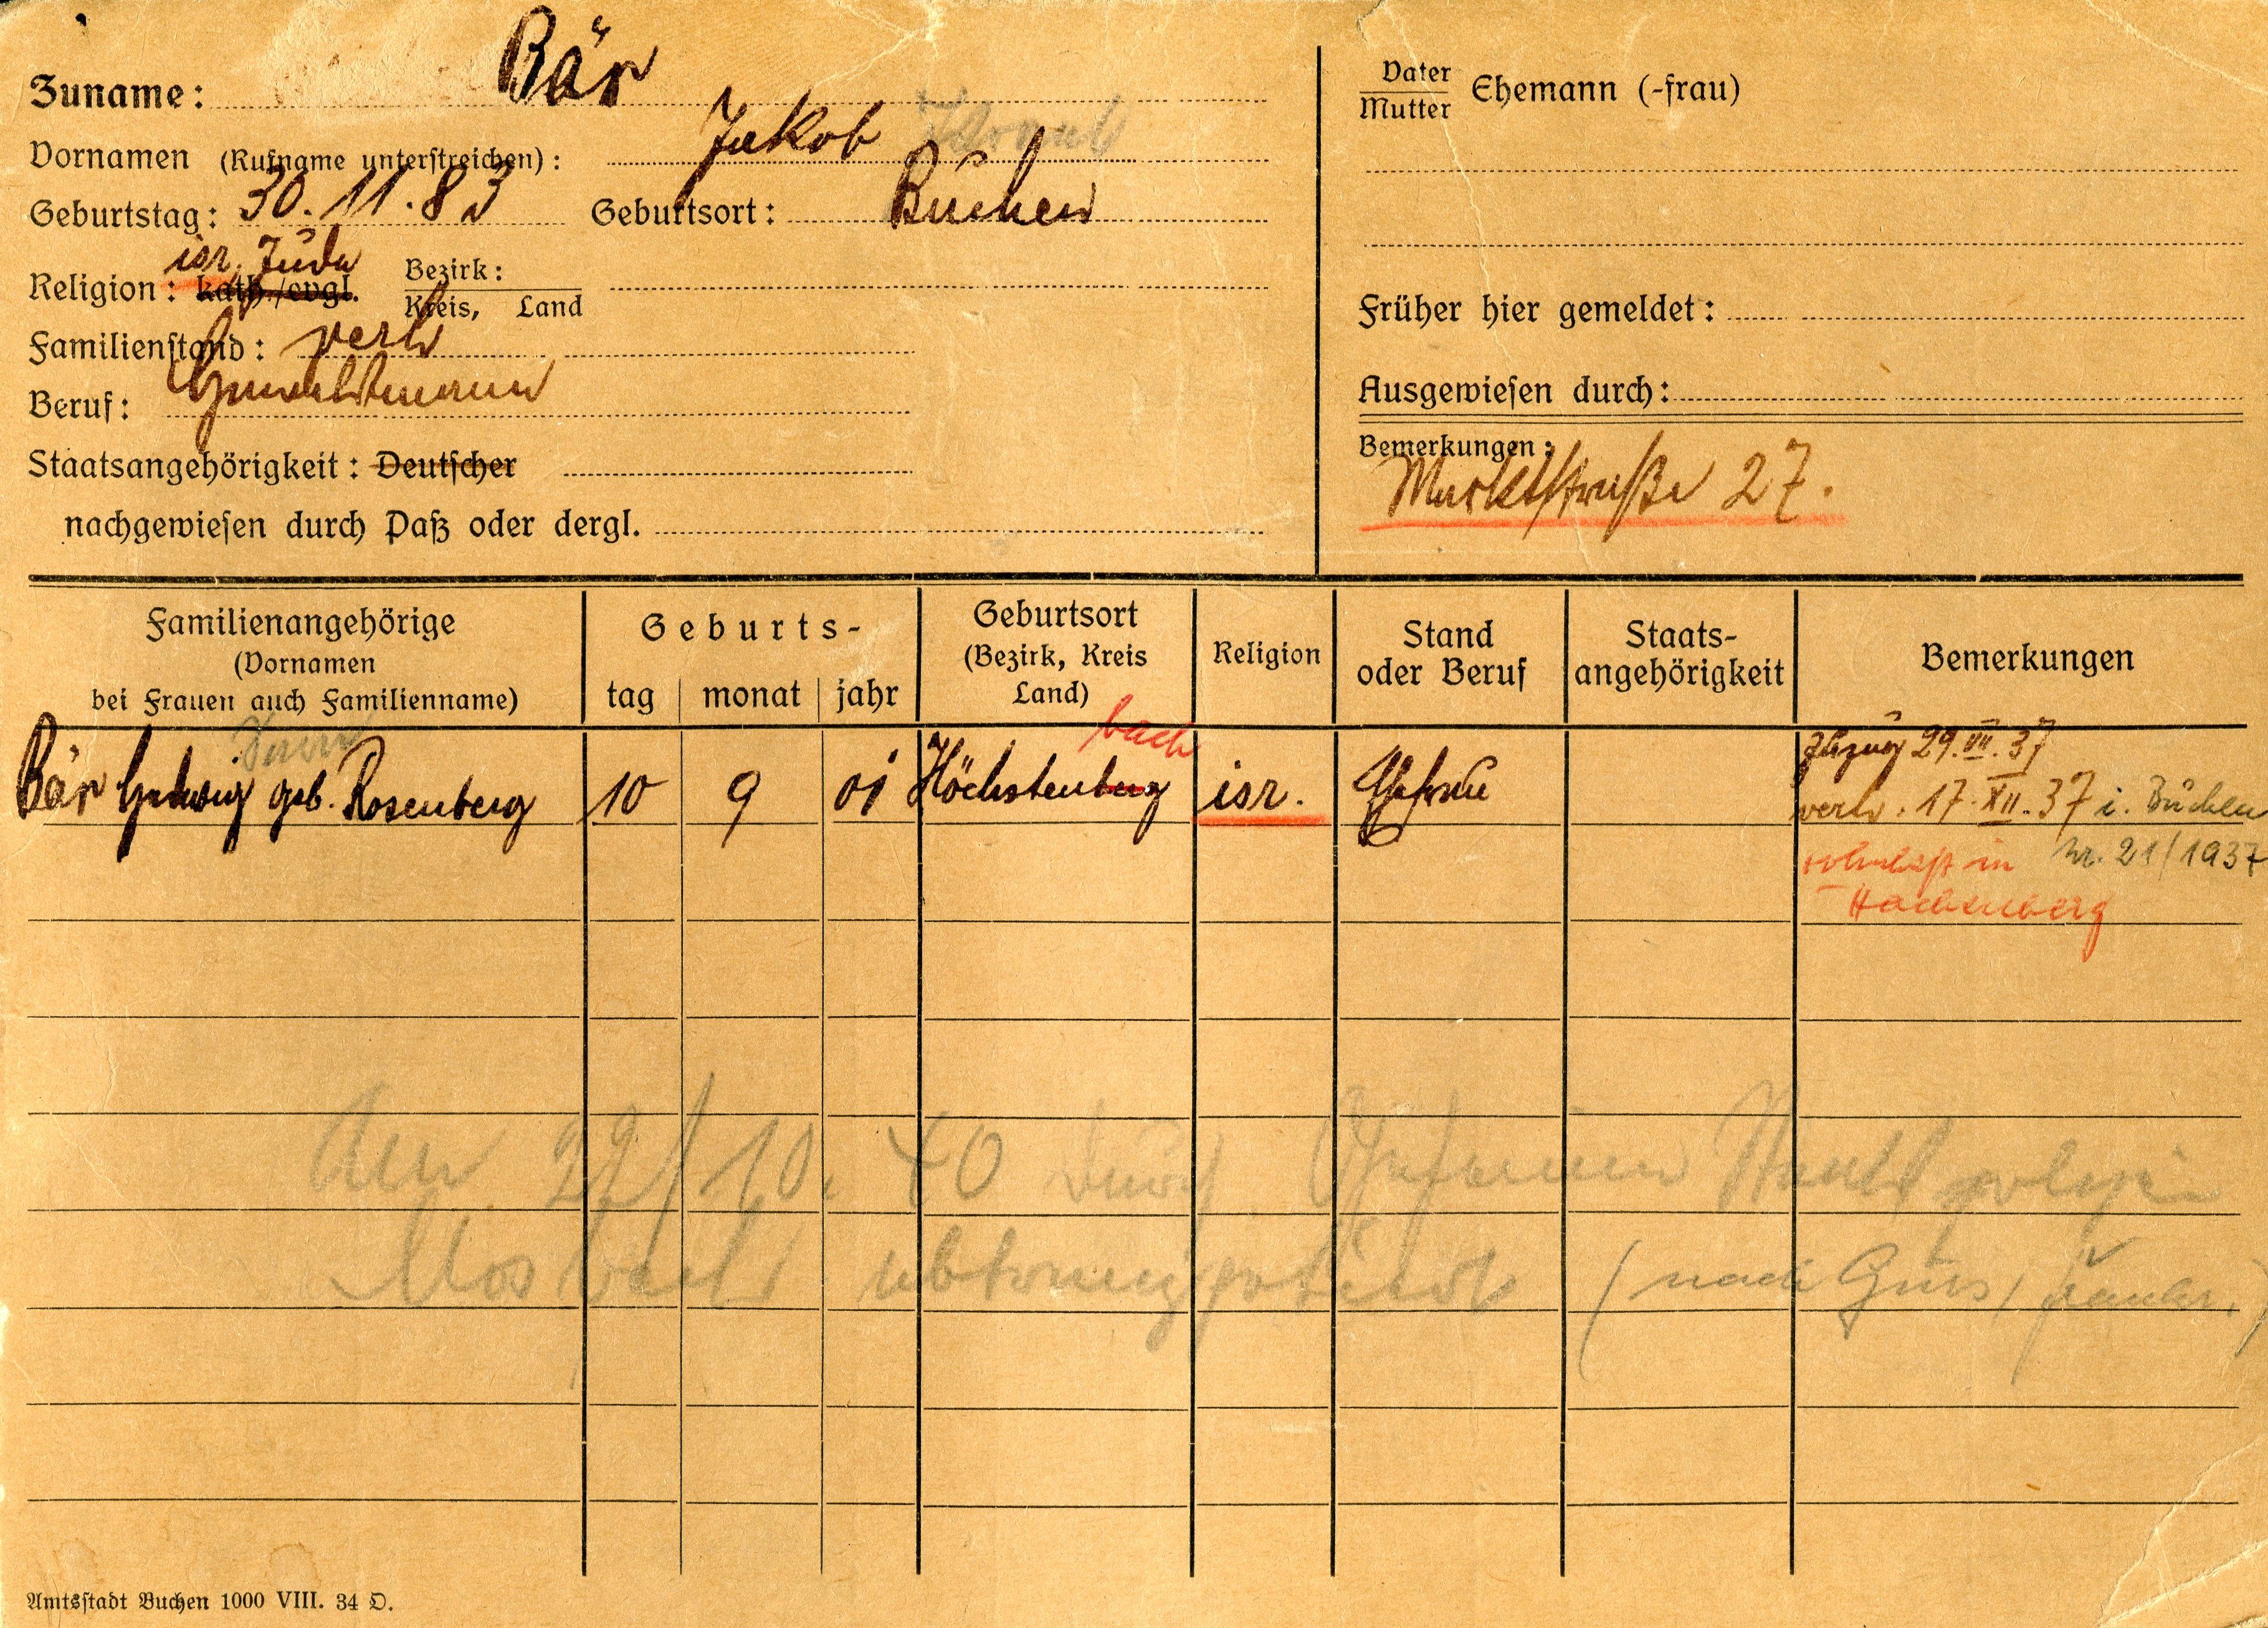 Zuname: Bär
Vornamen (Rufname unterstreichen): Jakob Israel
Geburtstag: 30.11.83 Geburtsort: Buchen
isr, Jude
Religion: kath./evgl. Bezirk: Kreis, Land
Familienstand: verh
Beruf:
Staatsangehörigkeit: Deutscher
nachgewiesen durch Paß oder dergl.
Vater Mutter Ehemann (-frau)
Früher hier gemeldet:
Ausgewiesen durch:
Bemerkungen:
Marktstraße 27.
Familienangehörige (Vornamen bei Frauen auch Familienname)
Geburts- tag monat jahr
Geburtsort (Bezirk, Kreis Land)
Religion
Stand oder Beruf
Staats- angehörigkeit
Bemerkungen
Sara
bach
Bär Hedwig geb. Rosenberg 10 9 01 Höchstenberg isr. Ehefrau
Zuzug 29.VII.37
verh. 17.XII.37 i. Buchen
Nr. 21/1937
wohnhaft in
Hachenberg
Am 22/10. 40 durch Geheime Staatspolizei
Mosbach abtransportiert (nach Gurs, Frankr.)
Amtsstadt Buchen 1000 VIII. 34 D.